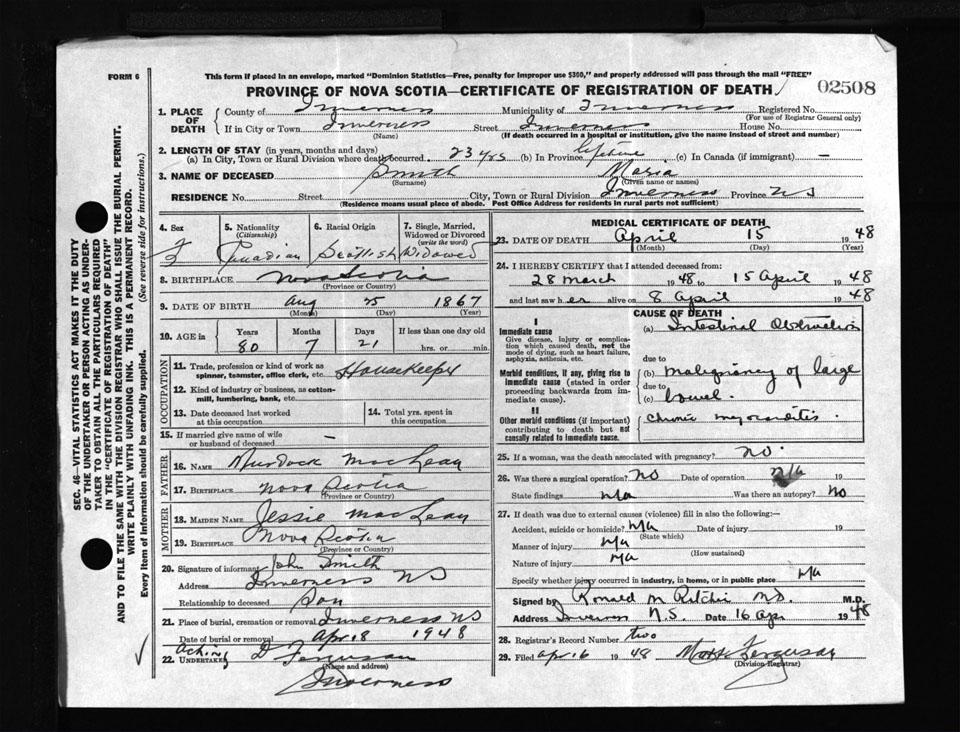 FORM 6
This form if placed in an envelope, marked "Dominion Statistics—Free, penalty for improper use $300," and properly addressed will pass through the mail "FREE"
PROVINCE OF NOVA SCOTIA—CERTIFICATE OF REGISTRATION OF DEATH
02508
1. PLACE OF DEATH
County of Inverness Municipality of Inverness Registered No.
(For use of Registrar General only)
If in City or Town Inverness Street Inverness House No.
(Name) (If death occurred in a hospital or institution, give the name instead of street and number)
2. LENGTH OF STAY (in years, months and days)
(a) In City, Town or Rural Division where death occurred. 23 yrs (b) In Province lifetime (c) In Canada (if immigrant) —
3. NAME OF DECEASED Smith Maria
(Surname) (Given name or names)
RESIDENCE No. Street City, Town or Rural Division Inverness Province NS
(Residence means usual place of abode. Post Office Address for residents in rural parts not sufficient)
4. Sex F
5. Nationality (Citizenship) Canadian
6. Racial Origin Scottish
7. Single, Married, Widowed or Divorced (write the word) Widowed
8. BIRTHPLACE Nova Scotia
(Province or Country)
9. DATE OF BIRTH Aug 25 1867
(Month) (Day) (Year)
10. AGE in Years Months Days If less than one day old
80 7 21 hrs. or min.
OCCUPATION
11. Trade, profession or kind of work as spinner, teamster, office clerk, etc. Housekeeper
12. Kind of industry or business, as cotton-mill, lumbering, bank, etc.
13. Date deceased last worked at this occupation
14. Total yrs. spent in this occupation
15. If married give name of wife or husband of deceased —
FATHER
16. NAME Murdock MacLean
17. BIRTHPLACE Nova Scotia
(Province or Country)
MOTHER
18. MAIDEN NAME Jessie MacLean
19. BIRTHPLACE Nova Scotia
(Province or Country)
20. Signature of informant John Smith
Address Inverness NS
Relationship to deceased Son
21. Place of burial, cremation or removal Inverness NS
Date of burial or removal Apr 18 1948
Acting
22. UNDERTAKER D Ferguson
(Name and address)
Inverness
MEDICAL CERTIFICATE OF DEATH
23. DATE OF DEATH April 15 1948
(Month) (Day) (Year)
24. I HEREBY CERTIFY that I attended deceased from:
28 March 1948 to 15 April 1948
and last saw her alive on 8 April 1948
CAUSE OF DEATH
I
Immediate cause
Give disease, injury or complication which caused death, not the mode of dying, such as heart failure, asphyxia, asthenia, etc.
(a) Intestinal Obstruction
due to
Morbid conditions, if any, giving rise to immediate cause (stated in order proceeding backwards from immediate cause)
(b) malignancy of large
due to
(c) bowel
II
Other morbid conditions (if important) contributing to death but not causally related to immediate cause.
chronic myocarditis
25. If a woman, was the death associated with pregnancy? no.
26. Was there a surgical operation? no Date of operation n/a 19
State findings n/a Was there an autopsy? no
27. If death was due to external causes (violence) fill in also the following:—
Accident, suicide or homicide? n/a Date of injury 19
(State which)
Manner of injury n/a
(How sustained)
Nature of injury n/a
Specify whether injury occurred in industry, in home, or in public place n/a
Signed by Ronald M Ritchie MD. M.D.
Address Inverness N.S. Date 16 Apr 1948
28. Registrar's Record Number two
29. Filed Apr 16 1948 Ferguson
(Division Registrar)
SEC. 46—VITAL STATISTICS ACT MAKES IT THE DUTY
OF THE UNDERTAKER OR PERSON ACTING AS UNDER-
TAKER TO OBTAIN ALL THE PARTICULARS REQUIRED
IN THE "CERTIFICATE OF REGISTRATION OF DEATH"
AND TO FILE THE SAME WITH THE DIVISION REGISTRAR WHO SHALL ISSUE THE BURIAL PERMIT.
WRITE PLAINLY WITH UNFADING INK. THIS IS A PERMANENT RECORD.
Every item of information should be carefully supplied. (See reverse side for instructions.)